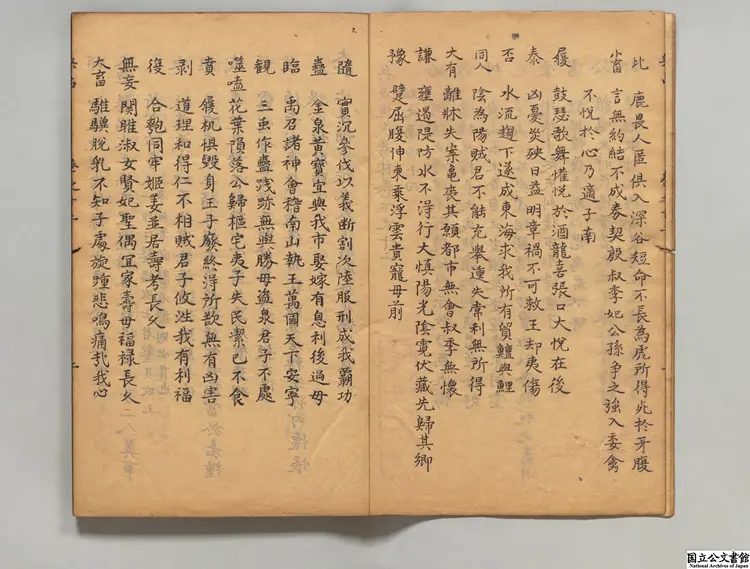 比 鹿畏人匿俱入深谷短命不長為虎所得死於牙腹
小畜 言無約結不成券契殷叔季妃公孫争之強入委禽
不悦於心乃適子南
履 鼓瑟歌舞懽悦於酒龍喜張口大悦在後
泰 凶憂災殃日益明章禍不可救王却夷傷
否 水流趨下遂成東海求我所有買鱣與鯉
同人 陰為陽賊君不能克舉連失常利無所得
大有 離牀失案龜喪其願都市無會叔季無懷
謙 壅遏隄防水不得行大慎陽光陰霓伏藏走歸其鄉
豫 蠖屈腹伸東乗浮雲貴寵毋前
隨 實沉參伐以義斷割次陸服刑成我霸功
蠱 金泉黄寶宜與我市娶嫁有息利後過母
臨 禹召諸神會稽南山執王萬國天下安寧
觀 三蟲作蠱淺跡無與勝母盗泉君子不處
噬嗑 花葉隕落公歸樞宅夷子失民潔己不食
賁 履杌俱毀身王子廢終得所欲無有凶害
剥 道理和得仁不相賊君子攸往我有利福
復 合匏同牢姬姜並居壽考長久
無妄 関雎淑女賢妃聖偶宜家壽母福禄長久
大畜 騅驥脱乳不知子處旋踵悲鳴痛我心
国立公文書館
National Archives of Japan